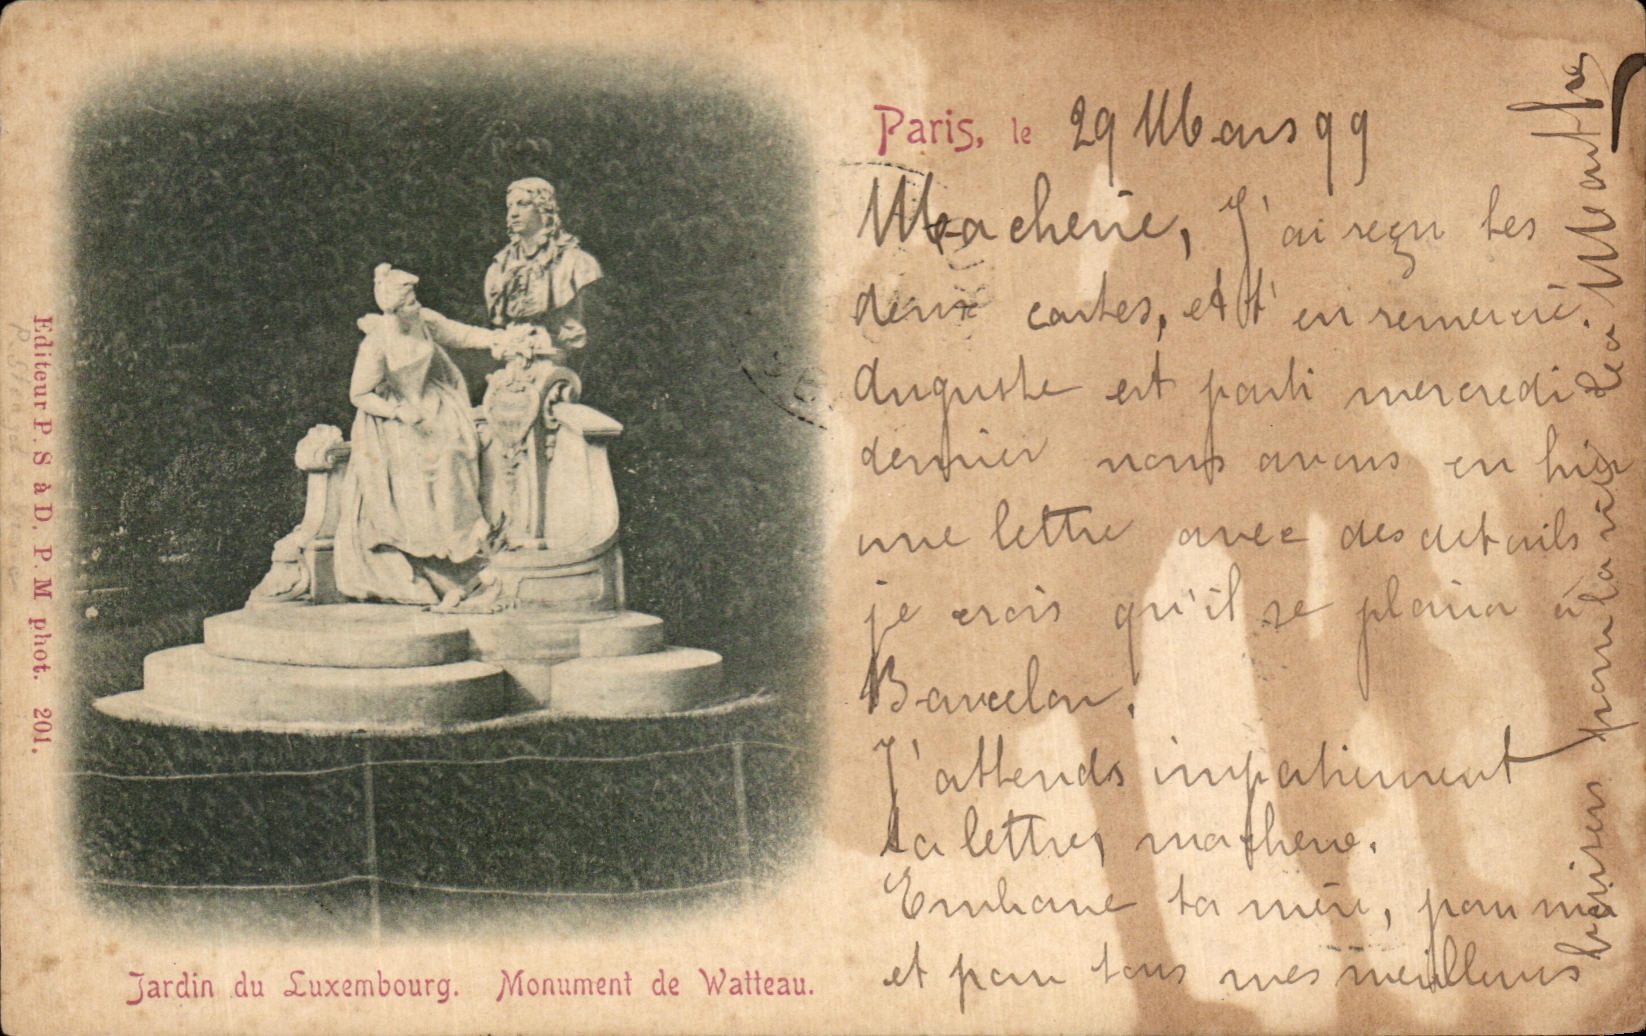 Paris, le 29 Mars 99
Ma cherie, J'ai reçu tes
deux cartes, et t'en remercie.
Auguste est parti mercredi
dernier nous avons eu hier
une lettre avec des details
je crois qu'il se plaira à
Barcelon.
J'attends impatiemment
ta lettre, ma cherie.
Embrasse ta mère, pour moi
et pour tous mes meilleurs
baisers pour la vie
Editeur P. S à D. P. M phot. 201.
Jardin du Luxembourg. Monument de Watteau.